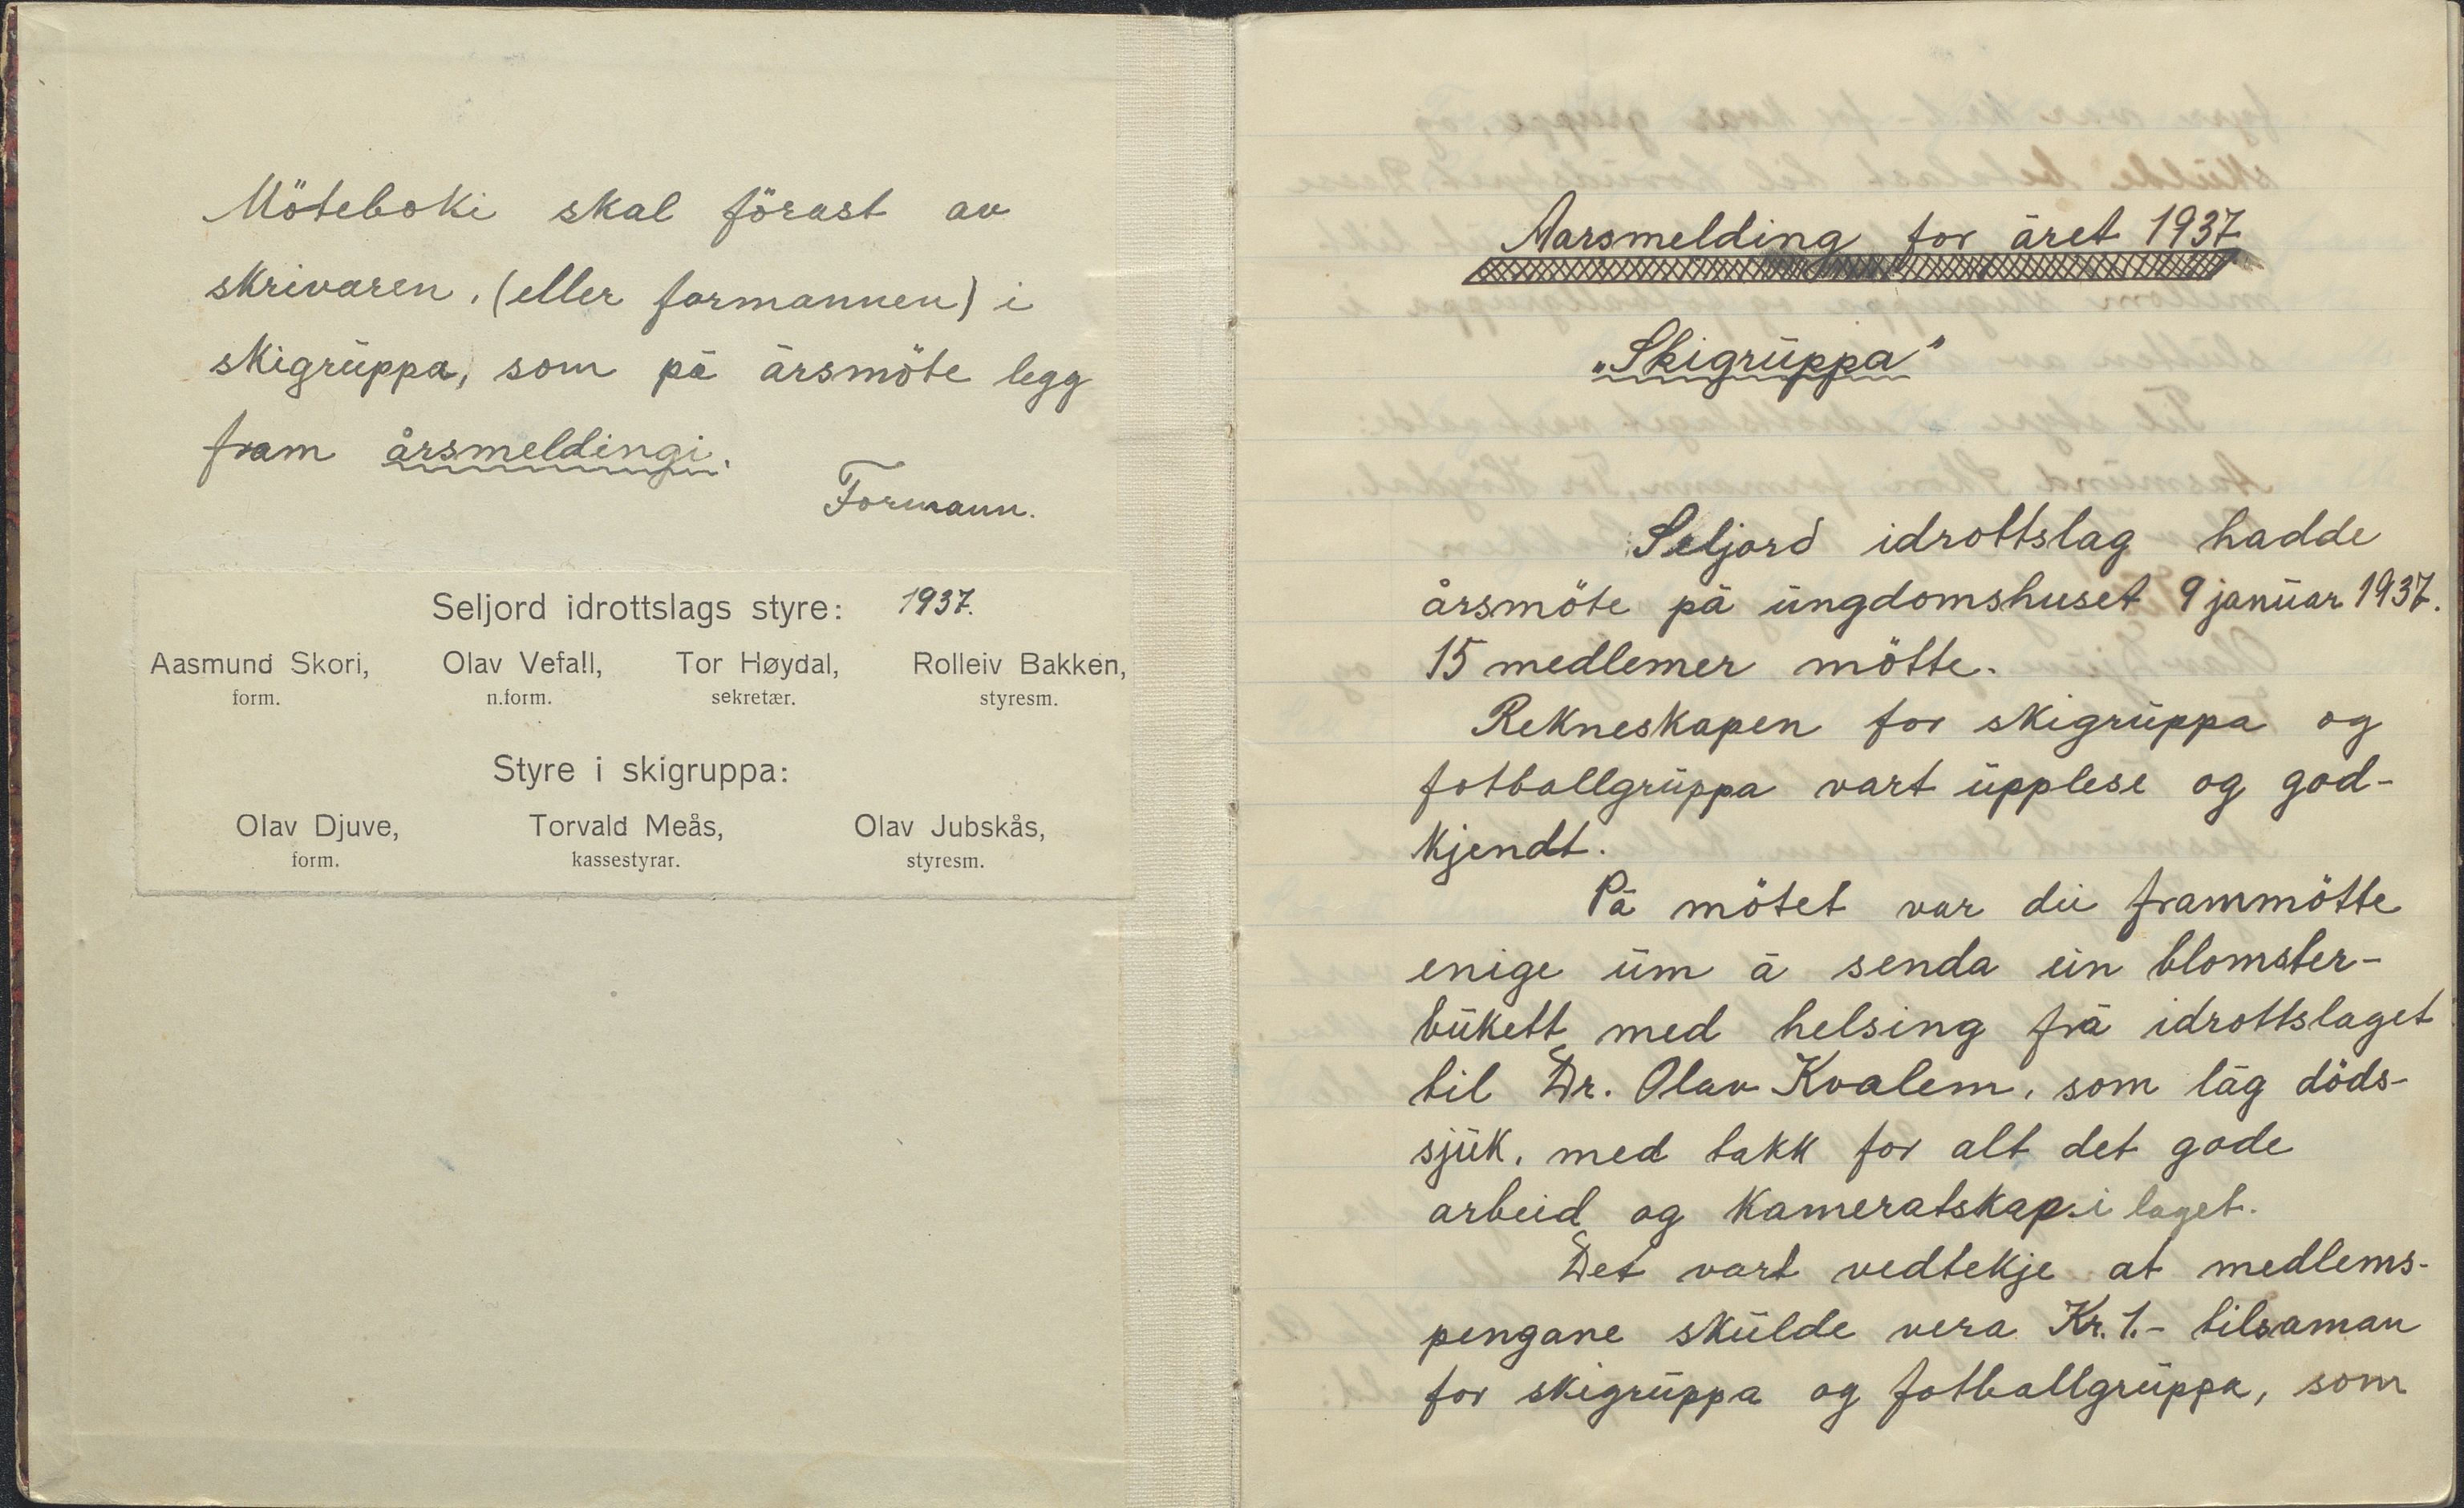 Möteboki skal förast av
skrivaren, (eller formannen) i
skigruppa, som på årsmöte legg
fram årsmeldingi.
Formann.
Seljord idrottslags styre: 1937.
Aasmund Skori, Olav Vefall, Tor Høydal, Rolleiv Bakken,
form. n.form. sekretær. styresm.
Styre i skigruppa:
Olav Djuve, Torvald Meås, Olav Jubskås,
form. kassestyrar. styresm.
Aarsmelding for året 1937
„Skigruppa"
Seljord idrottslag hadde
årsmöte på ungdomshuset 9 januar 1937.
15 medlemer mötte.
Rekneskapen for skigruppa og
fotballgruppa vart upplese og god-
kjendt.
På mötet var dei frammötte
enige um å senda ein blomster-
bukett med helsing frå idrottslaget
til Dr. Olav Kvalem, som låg döds-
sjuk, med takk for alt det gode
arbeid og kameratskap i laget.
Det vart vedtekje at medlems-
pengane skulde vera Kr. 1.- tilsaman
for skigruppa og fotballgruppa, som